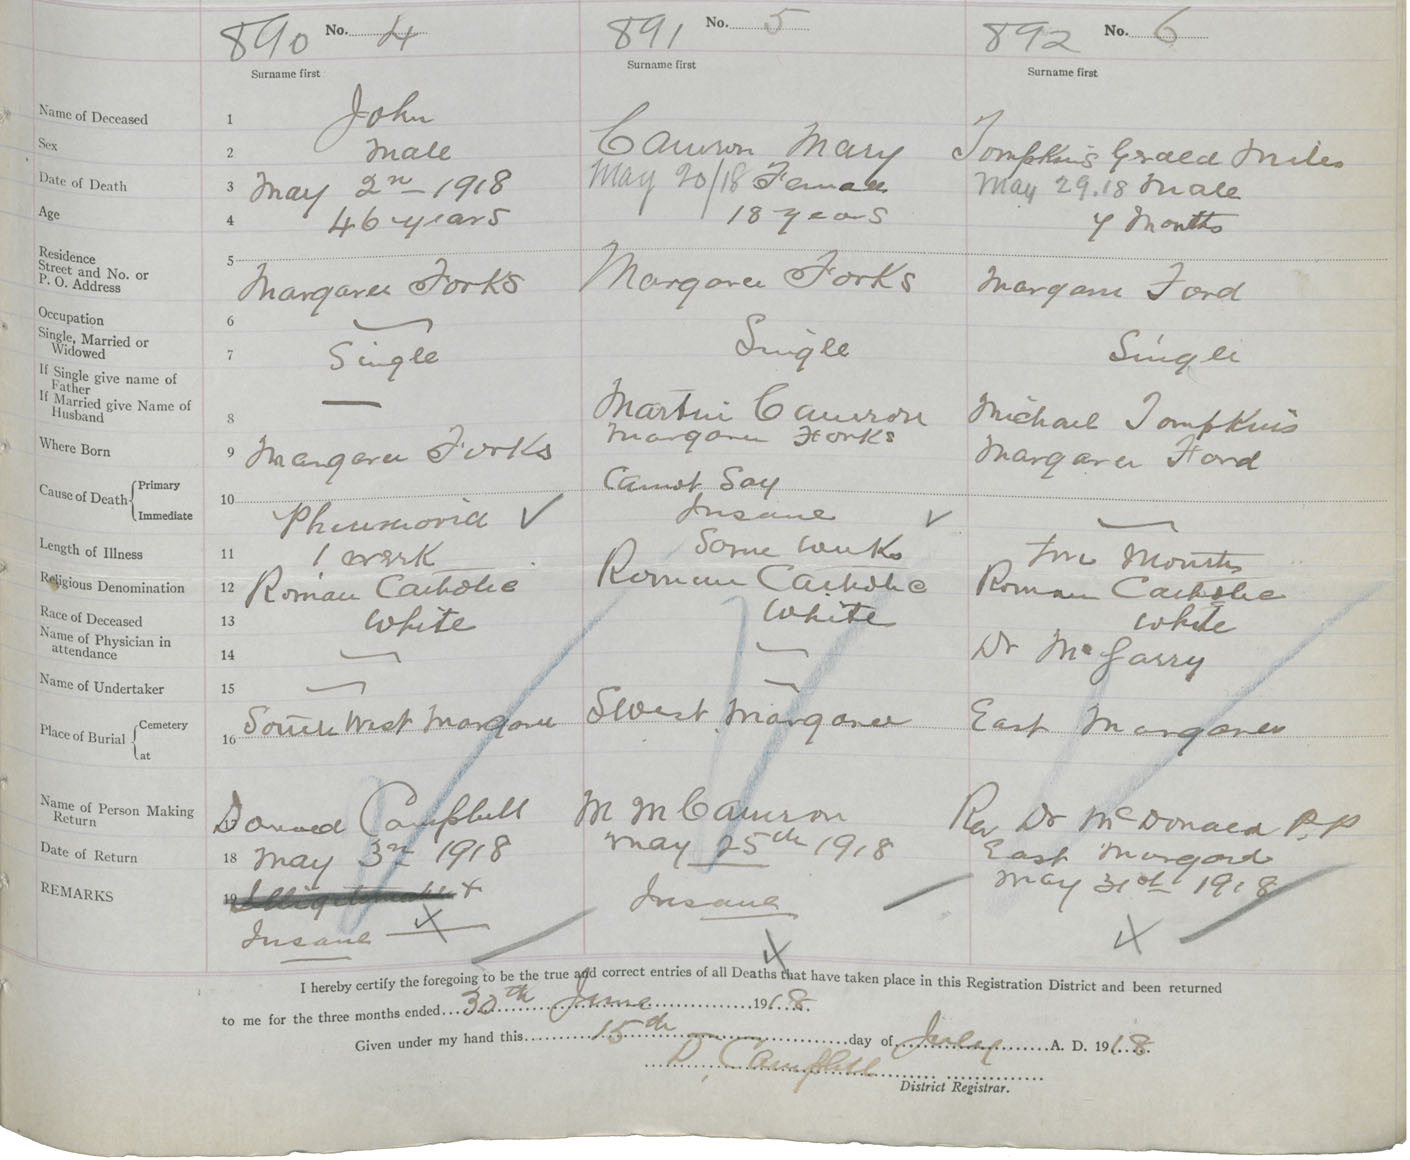 890 No. 4
891 No. 5
892 No. 6
Surname first
Surname first
Surname first
Name of Deceased 1 John Cameron Mary Tompkins Gerald Miles
Sex 2 Male Female Male
Date of Death 3 May 2nd 1918 May 20/18 May 29.18
Age 4 46 years 18 years 7 Months
Residence
Street and No. or
P. O. Address
5 Margaree Forks Margaree Forks Margaree Ford
Occupation 6
Single, Married or
Widowed
7 Single Single Single
If Single give name of
Father
If Married give Name of
Husband
8 — Martin Cameron Michael Tompkins
Where Born 9 Margaree Forks Margaree Forks Margaree Ford
Cause of Death Primary 10 Cannot Say
Immediate Pneumonia ✓ Insane ✓
Length of Illness 11 1 week Some weeks Months
Religious Denomination 12 Roman Catholic Roman Catholic Roman Catholic
Race of Deceased 13 White White White
Name of Physician in
attendance
14 Dr McGarry
Name of Undertaker 15
Place of Burial Cemetery South West Margaree SWest Margaree East Margaree
at 16
Name of Person Making
Return
17 Donald Campbell M M Cameron Rev Dr McDonald P.P
East Margaree
Date of Return 18 May 3rd 1918 May 25th 1918 May 31st 1918
REMARKS 19 Illegitimate x
Insane x Insane x x
I hereby certify the foregoing to be the true and correct entries of all Deaths that have taken place in this Registration District and been returned
to me for the three months ended 30th June 1918.
Given under my hand this 15th day of July A. D. 1918.
D. Campbell
District Registrar.